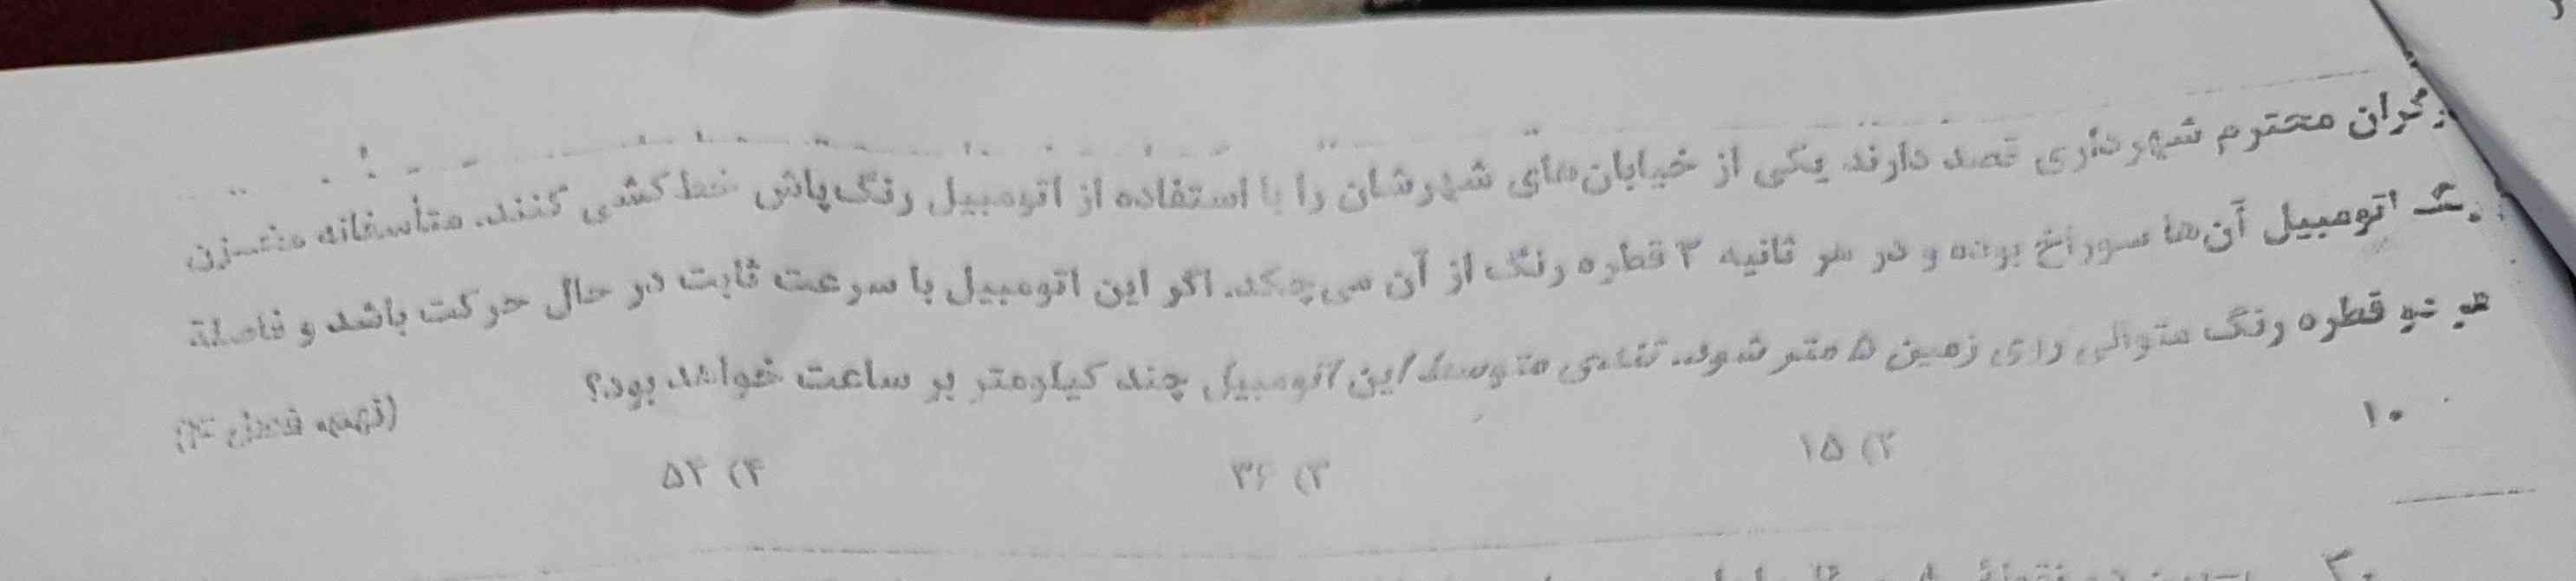 کارگران محترم شهرداری قصد دارند یکی از خیابان‌های شهرشان را با استفاده از اتومبیل رنگ‌پاش خط‌کشی کنند. متأسفانه مخزن
رنگ اتومبیل آن‌ها سوراخ بوده و در هر ثانیه ۳ قطره رنگ از آن می‌چکد. اگر این اتومبیل با سرعت ثابت در حال حرکت باشد و فاصلهٔ
هر دو قطره رنگ متوالی روی زمین ۵ متر شود، تندی متوسط این اتومبیل چند کیلومتر بر ساعت خواهد بود؟
(نهم، فصل ۴)
۱۰
۲) ۱۵
۳) ۳۶
۴) ۵۴